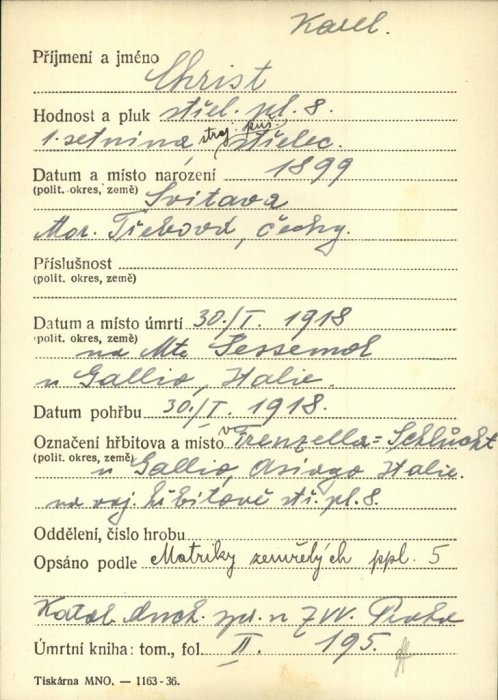 Karel.
Příjmení a jméno Christ
Hodnost a pluk střel. pl. 8.
1. setnina stroj. puš. střelec.
Datum a místo narození 1899
(polit. okres, země) Svitava
Mor. Třebová, Čechy.
Příslušnost
(polit. okres, země)
Datum a místo úmrtí 30./I. 1918
(polit. okres, země) na Mte Sessemol
u Gallio, Italie.
Datum pohřbu 30./I. 1918.
Označení hřbitova a místo v Frenzella=Schlucht
(polit. okres, země) u Gallio, Asiago Italie.
na voj. hřbitově stř. pl. 8.
Oddělení, číslo hrobu
Opsáno podle Matriky zemřelých ppl. 5
Katol. duch. spr. u ZVV. Praha
Úmrtní kniha: tom., fol. II. 195.
Tiskárna MNO. — 1163-36.